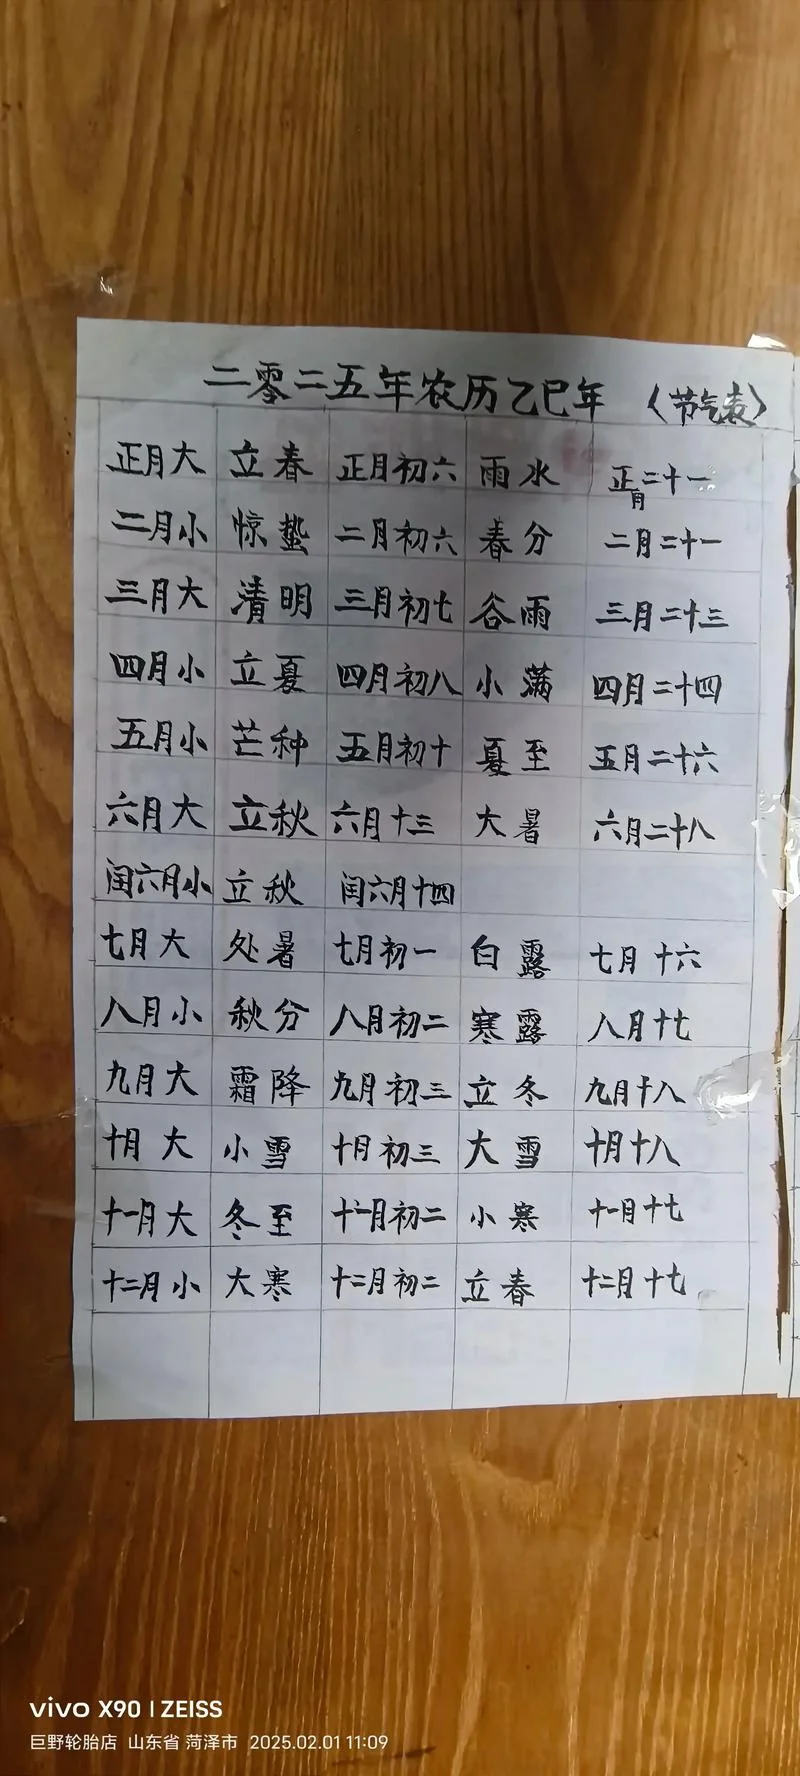 二零二五年农历乙巳年 〈节气表〉
正月大 立春 正月初六 雨水 正月二十一
二月小 惊蛰 二月初六 春分 二月二十一
三月大 清明 三月初七 谷雨 三月二十三
四月小 立夏 四月初八 小满 四月二十四
五月小 芒种 五月初十 夏至 五月二十六
六月大 立秋 六月十三 大暑 六月二十八
闰六月小 立秋 闰六月十四
七月大 处暑 七月初一 白露 七月十六
八月小 秋分 八月初二 寒露 八月十七
九月大 霜降 九月初三 立冬 九月十八
十月大 小雪 十月初三 大雪 十月十八
十一月大 冬至 十一月初二 小寒 十一月十七
十二月小 大寒 十二月初二 立春 十二月十七
vivo X90 | ZEISS
巨野轮胎店 山东省 菏泽市 2025.02.01 11:09